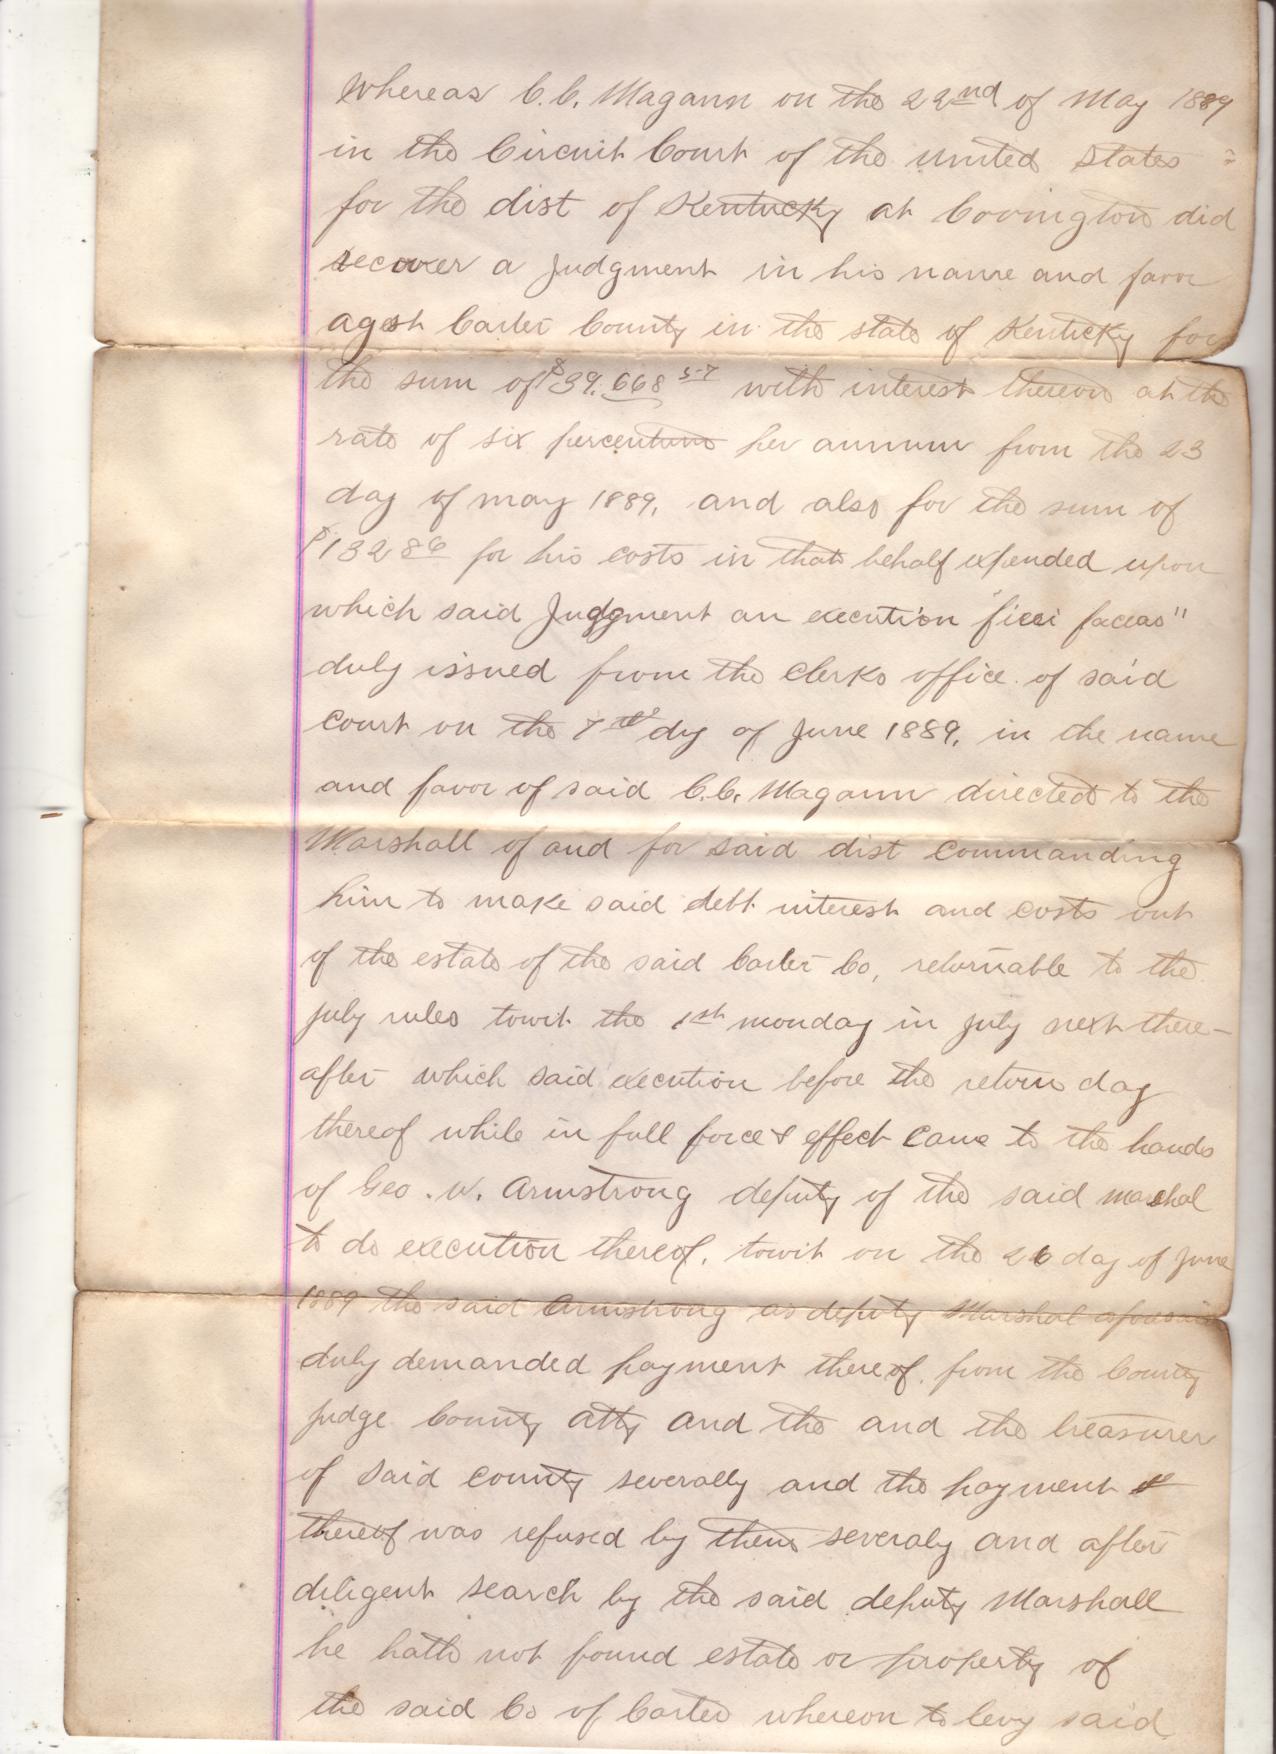 Whereas C.C. Magann on the 22nd of May 1889
in the Circuit Court of the United States
for the dist of Kentucky at Covington did
recover a Judgment in his name and favor
agst Carter County in the state of Kentucky for
the sum of $39.668 57 with interest thereon at the
rate of six percentum per annum from the 23
day of may 1889, and also for the sum of
$132 86 for his costs in that behalf expended upon
which said Judgment an execution "fieri facias"
duly issued from the Clerks office of said
court on the 7th dy of June 1889, in the name
and favor of said C.C. Magann directed to the
Marshall of and for said dist commanding
him to make said debt interest and costs out
of the estate of the said Carter Co, returnable to the
July rules towit the 1st monday in July next there-
after which said execution before the return day
thereof while in full force & effect came to the hands
of Geo. W. Armstrong deputy of the said marshal
to do execution thereof, towit on the 26 day of June
1889 the said Armstrong as deputy Marshal aforesaid
duly demanded payment thereof from the County
Judge County atty and the and the treasurer
of said county severally and the payment
thereof was refused by them severaly and after
diligent search by the said deputy Marshall
he hath not found estate or property of
the said Co of Carter whereon to levy said